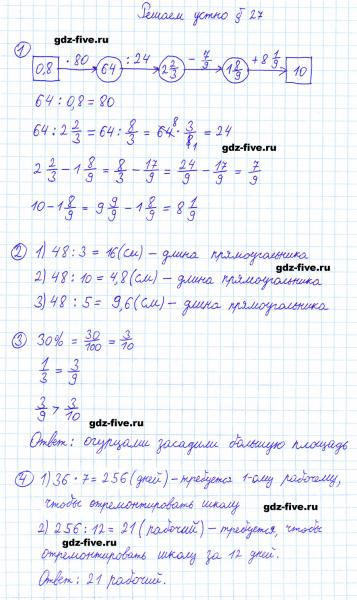 Решаем устно § 27
gdz-five.ru
1 0,8 · 80 64 : 24 2 2/3 - 7/9 1 8/9 + 8 1/9 10
64 : 0,8 = 80
64 : 2 2/3 = 64 : 8/3 = 64 8 · 3/8 1 = 24
gdz-five.ru
2 2/3 - 1 8/9 = 8/3 - 17/9 = 24/9 - 17/9 = 7/9
10 - 1 8/9 = 9 9/9 - 1 8/9 = 8 1/9
gdz-five.ru
2 1) 48 : 3 = 16 (см) - длина прямоугольника
gdz-five.ru
2) 48 : 10 = 4,8 (см) - длина прямоугольника
3) 48 : 5 = 9,6 (см) - длина прямоугольника
3 30% = 30/100 = 3/10
gdz-five.ru
1/3 = 3/9
3/9 > 3/10
gdz-five.ru
Ответ: огурцами засадили большую площадь
gdz-five.ru
4 1) 36 · 7 = 256 (дней) - требуется 1-ому рабочему,
чтобы отремонтировать школу
gdz-five.ru
2) 256 : 12 = 21 (рабочий) - требуется, чтобы
отремонтировать школу за 12 дней.
gdz-five.ru
Ответ: 21 рабочий.